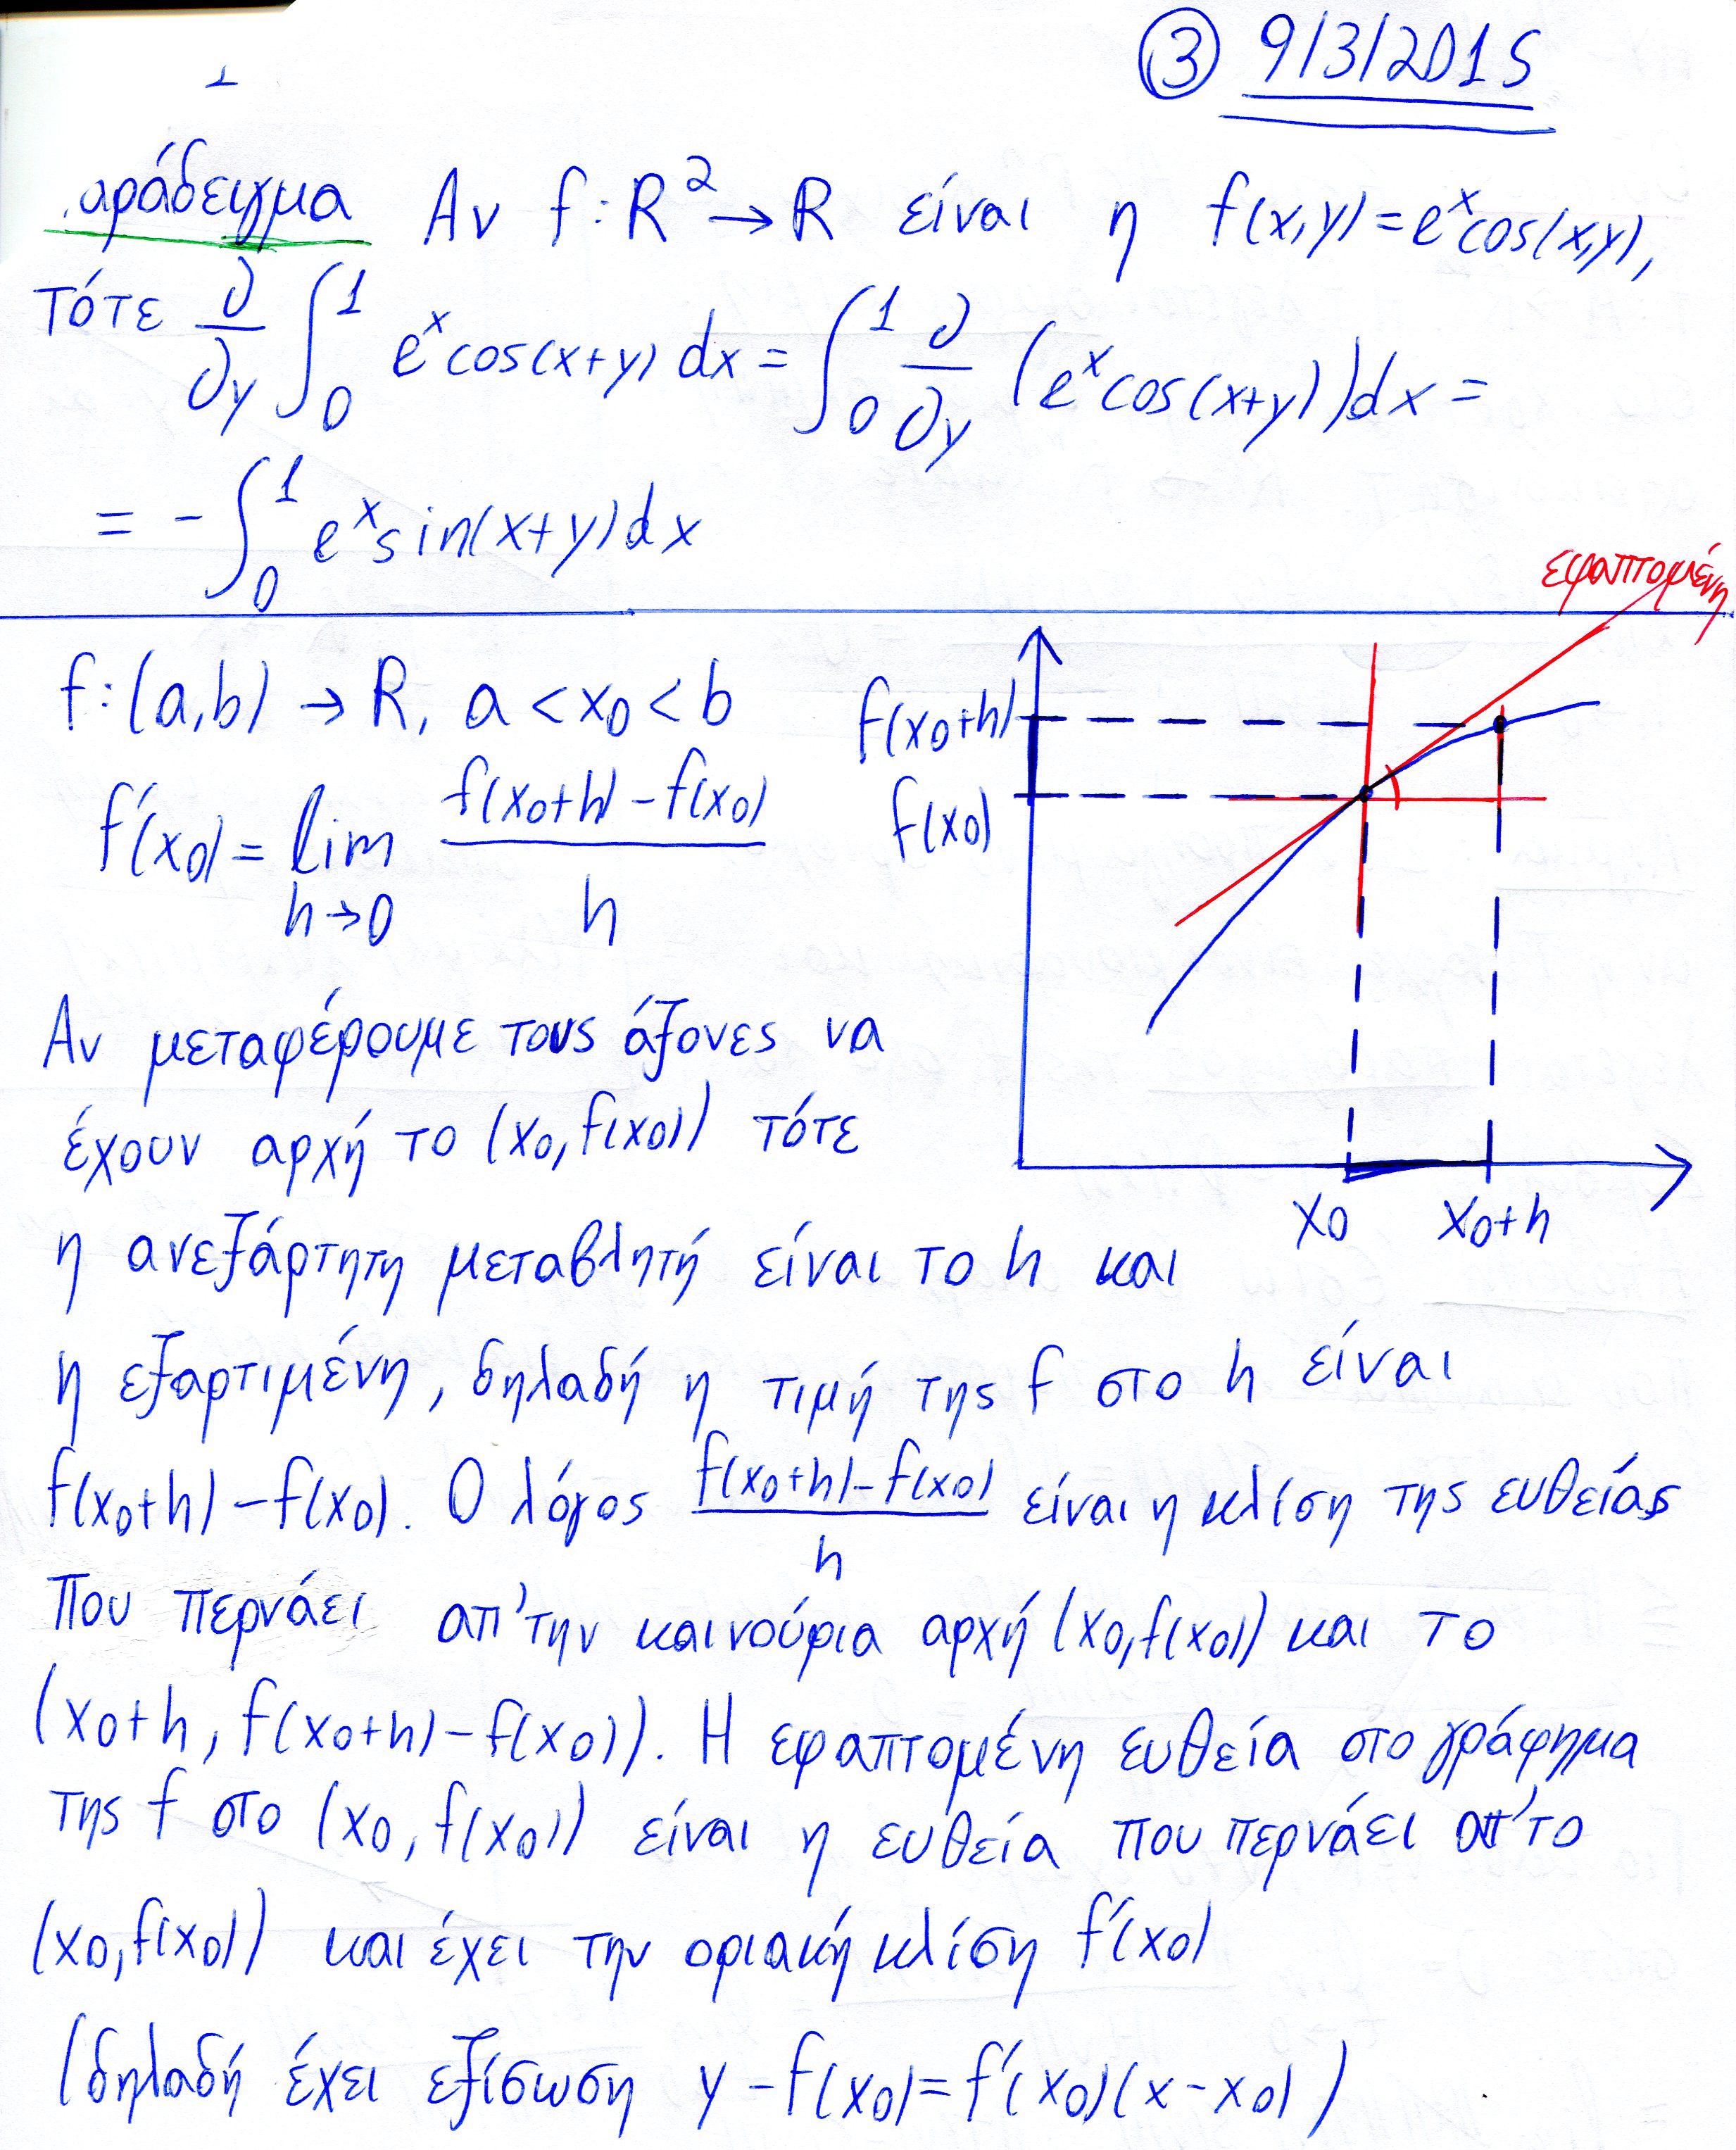 ③ 9/3/2015
αράδειγμα Αν f:R² → R είναι η f(x,y)=eˣcos(x,y),
τότε ∂/∂y ∫₀¹ eˣcos(x+y) dx = ∫₀¹ ∂/∂y (eˣcos(x+y))dx =
= -∫₀¹ eˣsin(x+y)dx
εφαπτομένη
f:(a,b) → R, a<x₀<b
f'(x₀) = lim h→0 (f(x₀+h)-f(x₀))/h
f(x₀+h)
f(x₀)
x₀ x₀+h
Αν μεταφέρουμε τους άξονες να
έχουν αρχή το (x₀,f(x₀)) τότε
η ανεξάρτητη μεταβλητή είναι το h και
η εξαρτιμένη, δηλαδή η τιμή της f στο h είναι
f(x₀+h)-f(x₀). Ο λόγος (f(x₀+h)-f(x₀))/h είναι η κλίση της ευθείας
που περνάει απ'την καινούρια αρχή (x₀,f(x₀)) και το
(x₀+h, f(x₀+h)-f(x₀)). Η εφαπτομένη ευθεία στο γράφημα
της f στο (x₀,f(x₀)) είναι η ευθεία που περνάει απ'το
(x₀,f(x₀)) και έχει την οριακή κλίση f'(x₀)
(δηλαδή έχει εξίσωση y-f(x₀)=f'(x₀)(x-x₀))